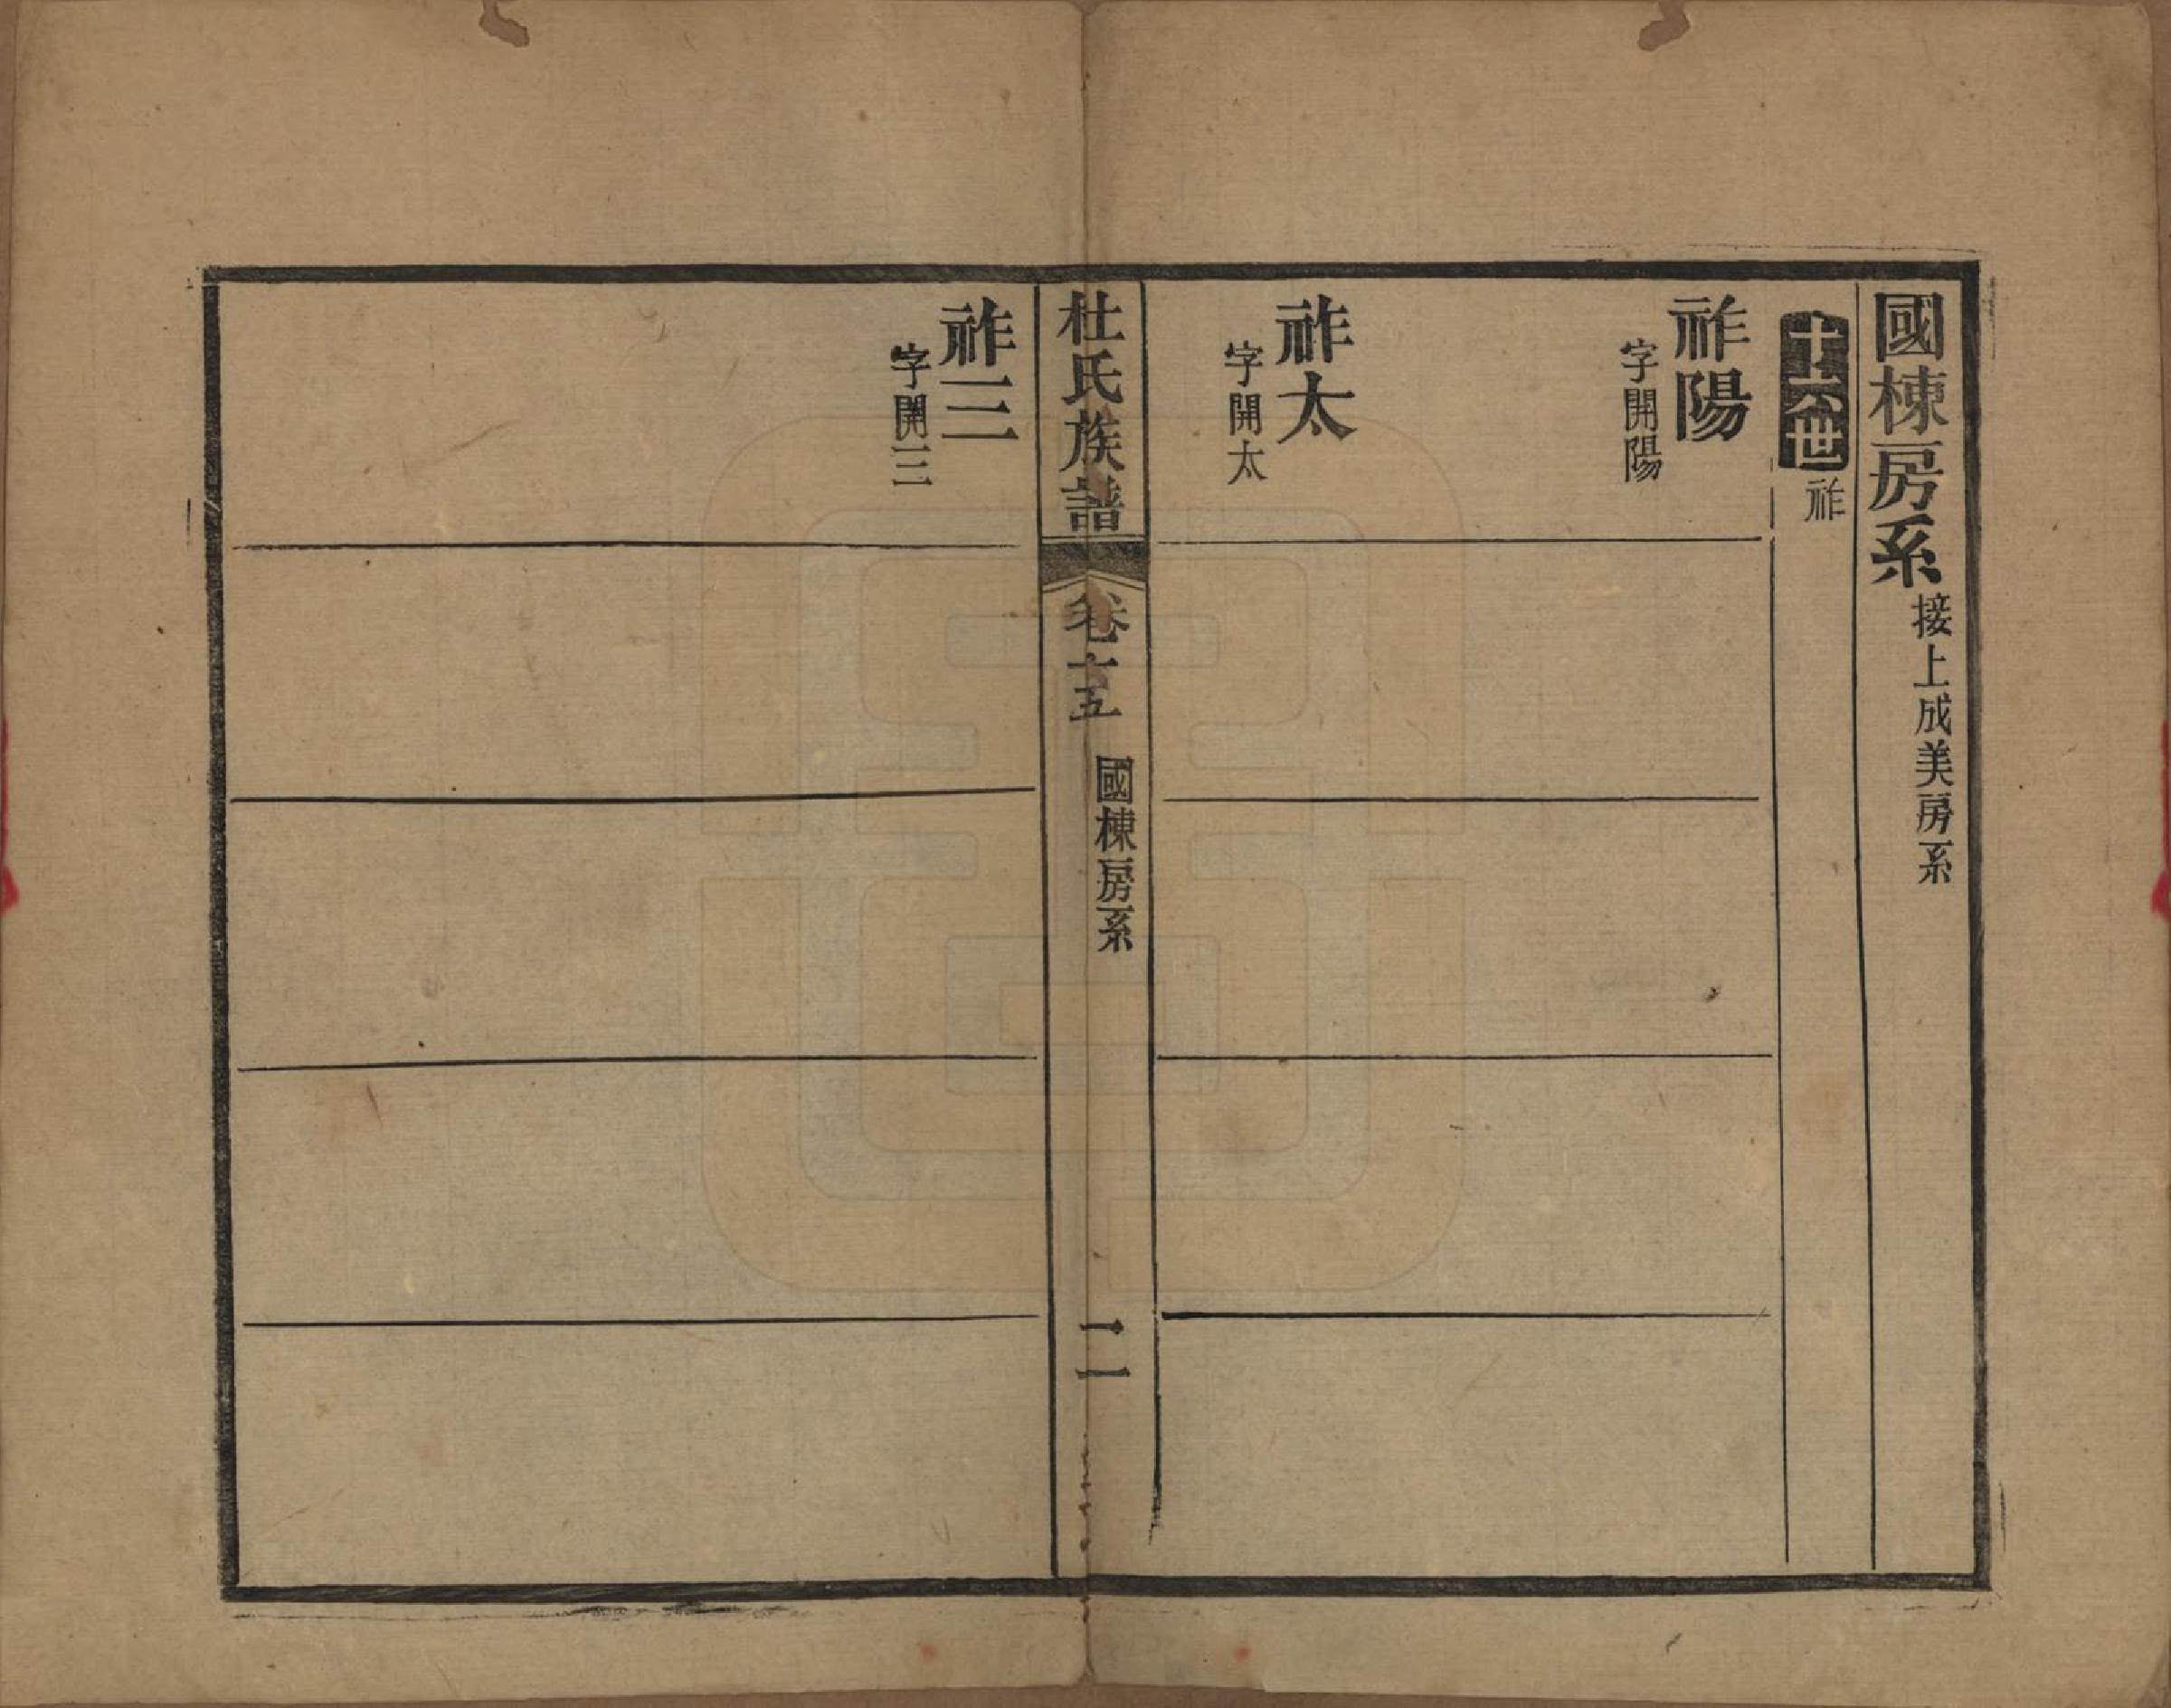 國棟房系接上成美房系
十六世祚
祚陽
字開陽
祚太
字開太
杜氏族譜 卷十五 國棟房系 二
祚三
字開三